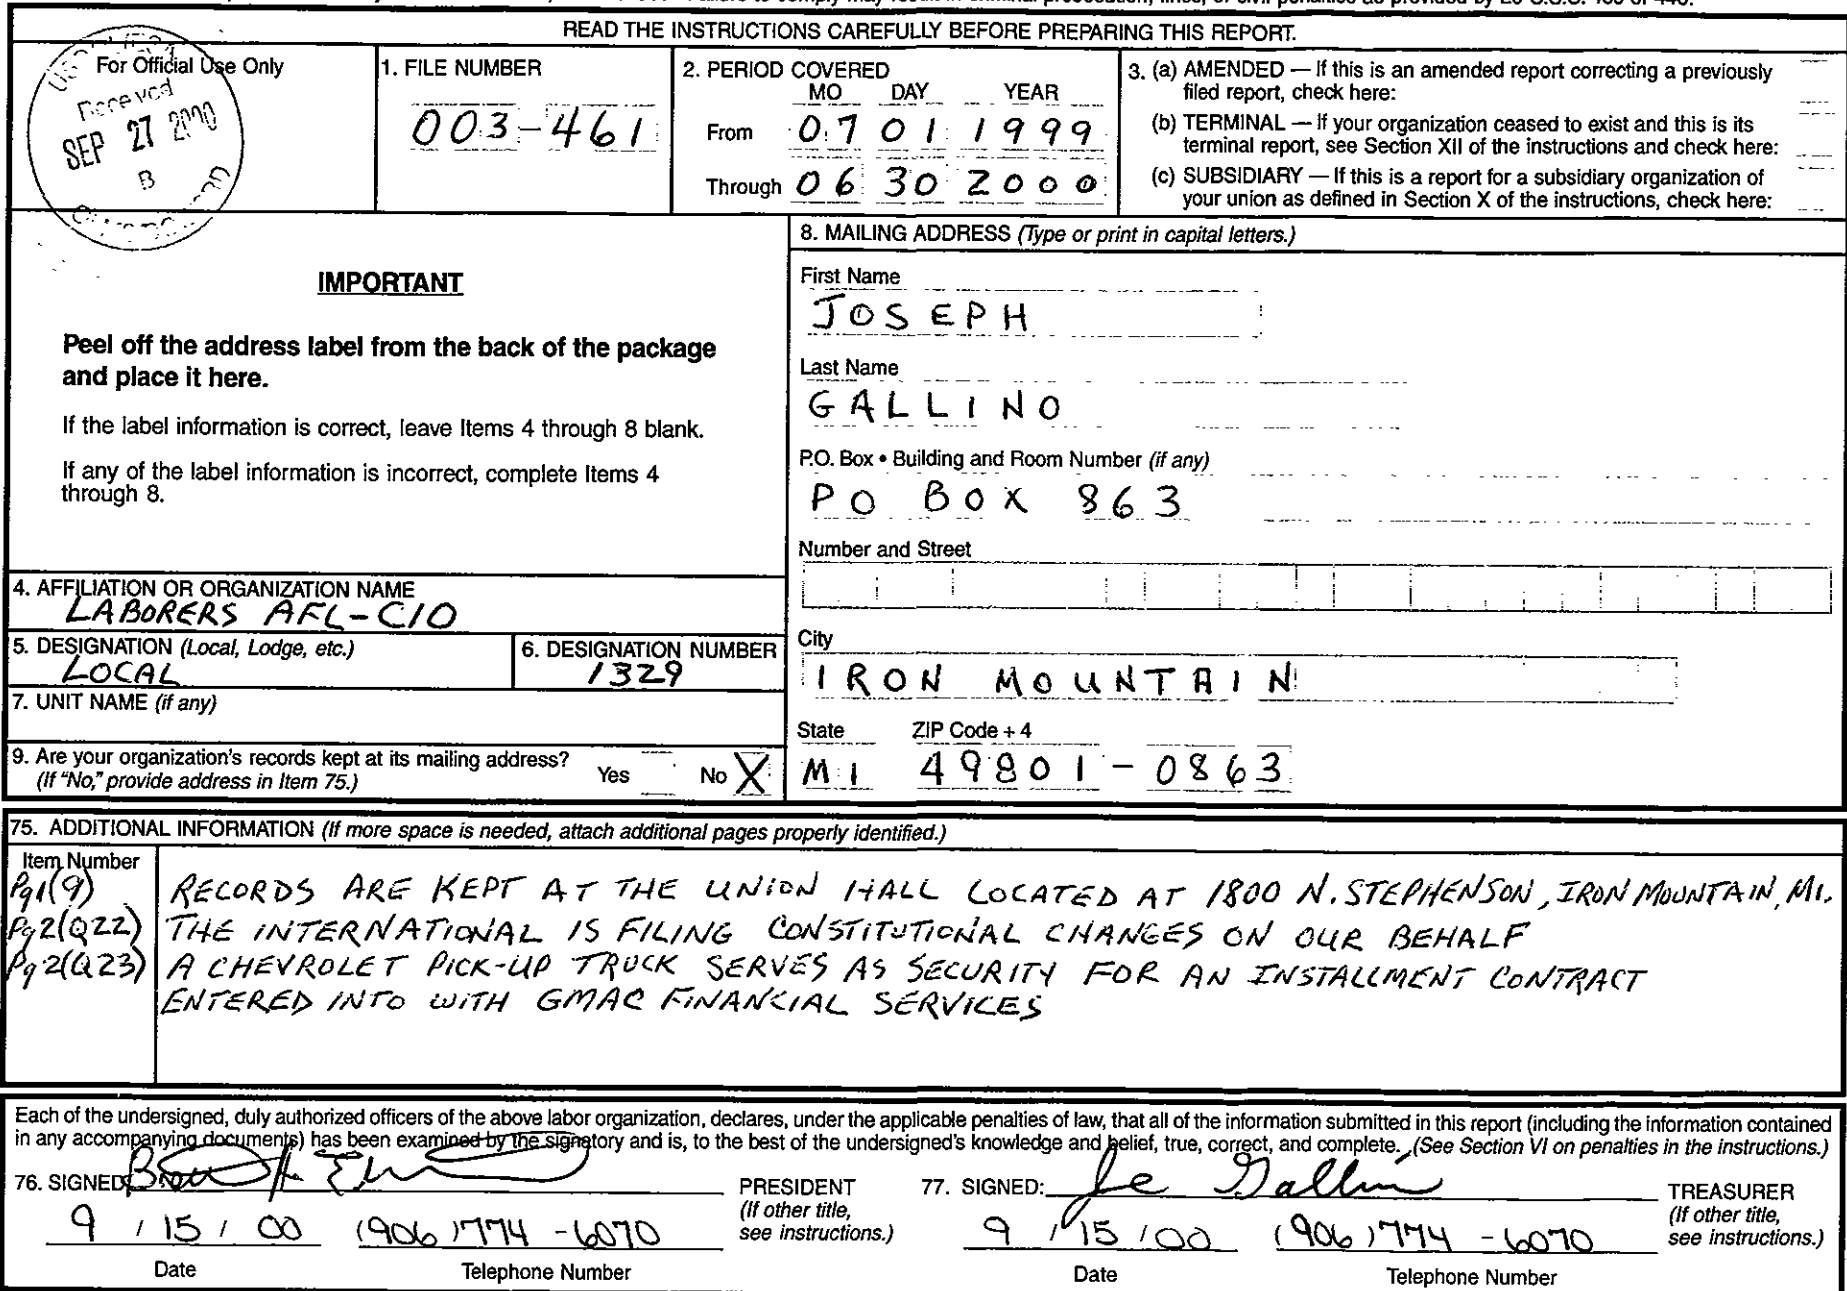 READ THE INSTRUCTIONS CAREFULLY BEFORE PREPARING THIS REPORT.
For Official Use Only
Received
SEP 27 2000
B
1. FILE NUMBER
003-461
2. PERIOD COVERED
MO DAY YEAR
From 07 01 1999
Through 06 30 2000
3. (a) AMENDED — If this is an amended report correcting a previously
filed report, check here:
(b) TERMINAL — If your organization ceased to exist and this is its
terminal report, see Section XII of the instructions and check here:
(c) SUBSIDIARY — If this is a report for a subsidiary organization of
your union as defined in Section X of the instructions, check here:
IMPORTANT
Peel off the address label from the back of the package
and place it here.
If the label information is correct, leave Items 4 through 8 blank.
If any of the label information is incorrect, complete Items 4
through 8.
4. AFFILIATION OR ORGANIZATION NAME
LABORERS AFL-CIO
5. DESIGNATION (Local, Lodge, etc.)
LOCAL
6. DESIGNATION NUMBER
1329
7. UNIT NAME (if any)
9. Are your organization's records kept at its mailing address?
(If "No," provide address in Item 75.)
Yes No X
8. MAILING ADDRESS (Type or print in capital letters.)
First Name
JOSEPH
Last Name
GALLINO
P.O. Box • Building and Room Number (if any)
PO BOX 863
Number and Street
City
IRON MOUNTAIN
State ZIP Code + 4
MI 49801-0863
75. ADDITIONAL INFORMATION (If more space is needed, attach additional pages properly identified.)
Item Number
Pg1(9) RECORDS ARE KEPT AT THE UNION HALL LOCATED AT 1800 N. STEPHENSON, IRON MOUNTAIN, MI.
Pg2(Q22) THE INTERNATIONAL IS FILING CONSTITUTIONAL CHANGES ON OUR BEHALF
Pg2(Q23) A CHEVROLET PICK-UP TRUCK SERVES AS SECURITY FOR AN INSTALLMENT CONTRACT
ENTERED INTO WITH GMAC FINANCIAL SERVICES
Each of the undersigned, duly authorized officers of the above labor organization, declares, under the applicable penalties of law, that all of the information submitted in this report (including the information contained
in any accompanying documents) has been examined by the signatory and is, to the best of the undersigned's knowledge and belief, true, correct, and complete. (See Section VI on penalties in the instructions.)
76. SIGNED:
PRESIDENT
(If other title,
see instructions.)
9 / 15 / 00 (906) 774-6070
Date Telephone Number
77. SIGNED: Joe Gallino
TREASURER
(If other title,
see instructions.)
9 / 15 / 00 (906) 774-6070
Date Telephone Number